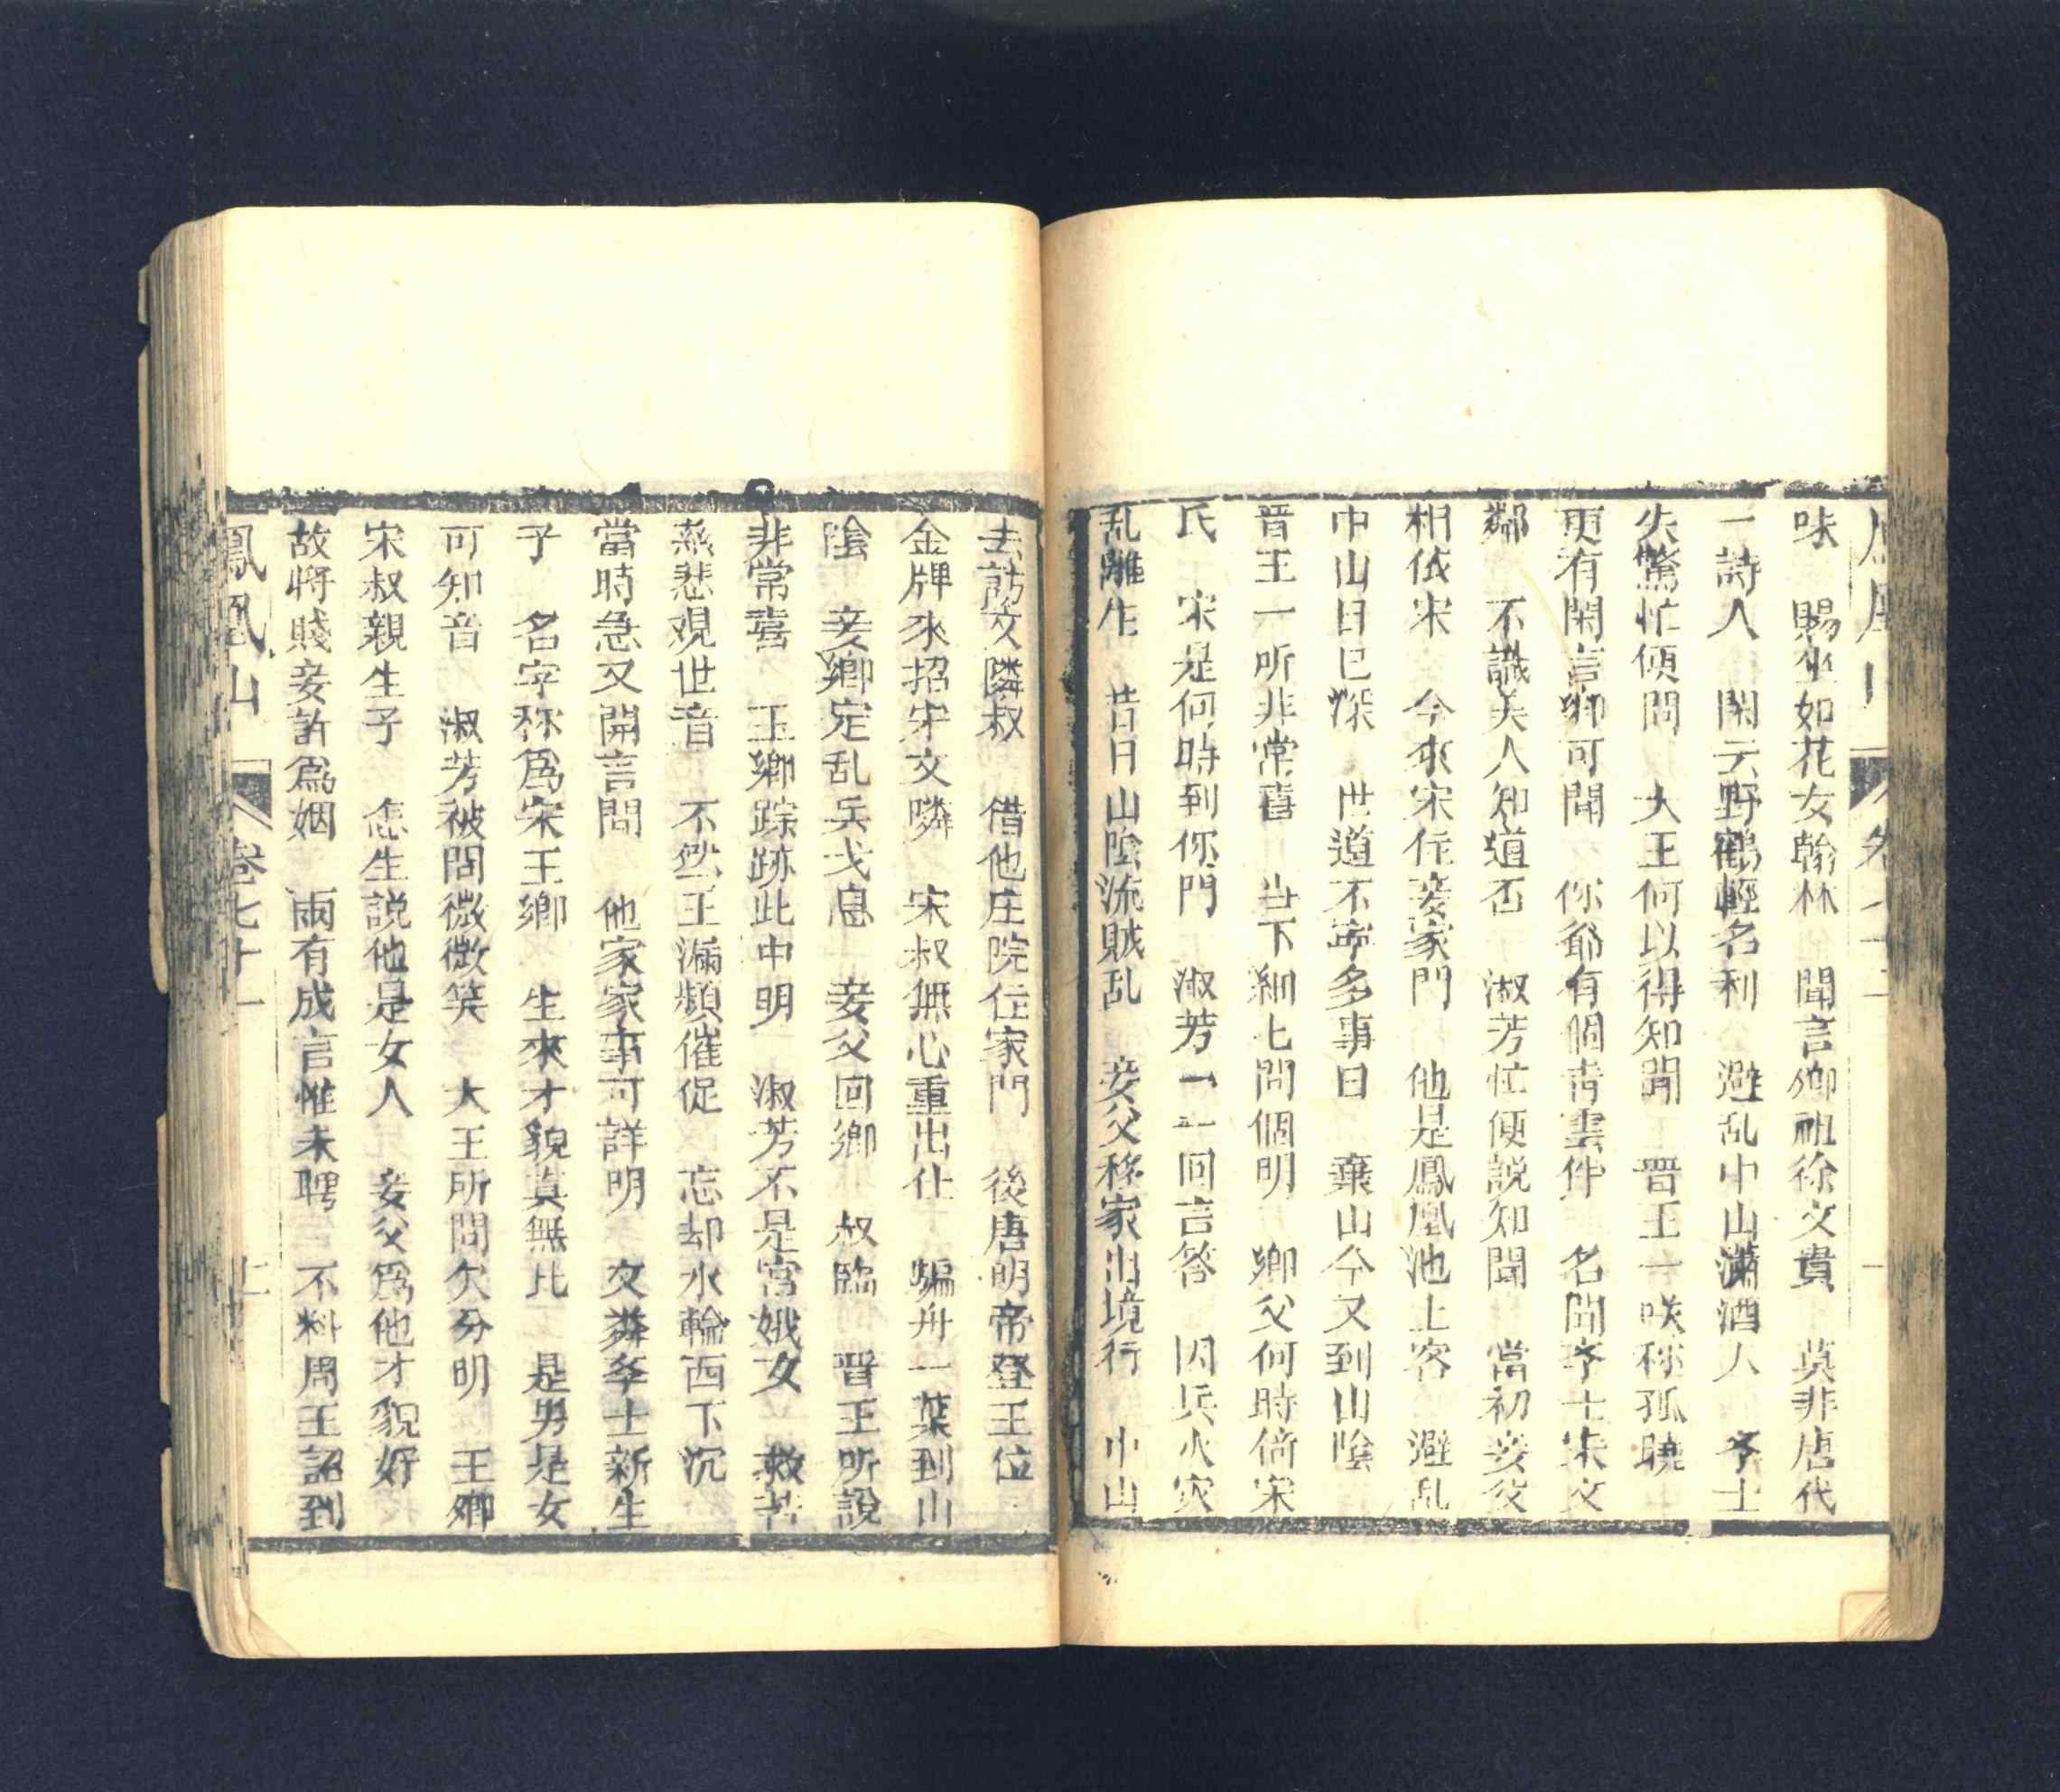 味 賜坐如花女翰林 聞言卿祖徐文貴 莫非唐代
一詩人 閑云野鶴輕名利 避乱中山瀟洒人 李士
失驚忙便問 大王何以得知聞 晋王一咲称孤曉
更有閑言卿可聞 你爺有個青雲件 名問李士宋文
鄰 不識夫人知道否 淑芳忙便説知聞 當初妾父
相依宋 今來宋住妾家門 他是鳳凰池上客 避乱
中山日已深 世道不寧多事日 棄山今又到山陰
晋王一所非常喜 当下細七問個明 卿父何時倚宋
氏 宋是何時到你門 淑芳一一回言答 因兵火灾
乱離生 昔日山陰流賊乱 妾父移家出境行 中山
去訪文隣叔 借他庄院住家門 後唐明帝登王位
金牌來招宋文隣 宋叔無心重出仕 騙舟一葉到山
陰 妾鄉定乱兵戈息 妾父回鄉 叔臨 晋王所説
非常喜 玉卿踪跡此中明 淑芳不是宮娥女 救苦
慈悲观世音 不然王漏頻催促 忘却水輪西下沉
當時急又開言問 他家家事可詳明 文粦李士新生
子 名字称爲宋王卿 生來才貌真無比 是男是女
可知音 淑芳被問微微笑 大王所問欠分明 王卿
宋叔親生子 怎生説他是女人 妾父爲他才貌好
故將賤妾許爲姻 兩有成言惟未聘 不料周王詔到
鳳凰山 卷七十一 上